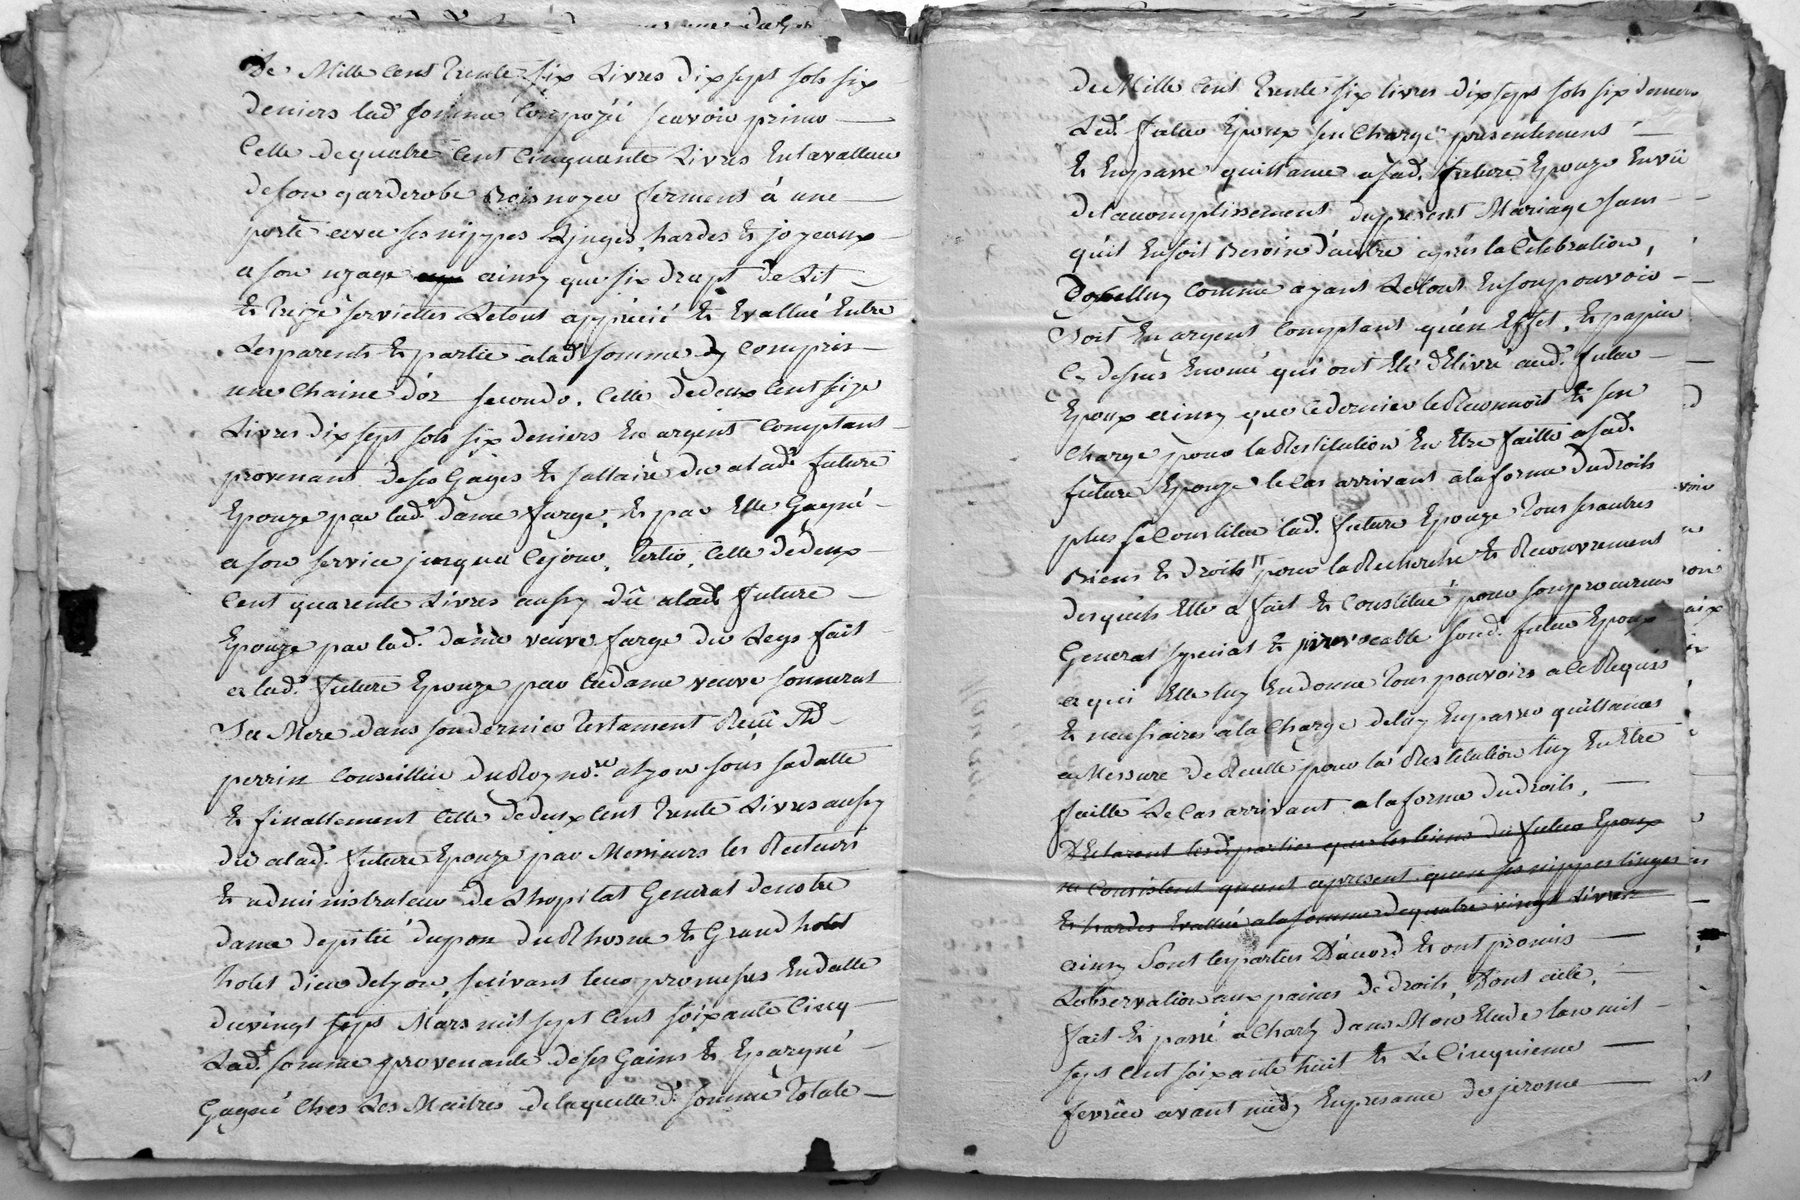 de Mille cent trente six Livres dix sept sols six
deniers lad. somme Composéé scavoir primo
Celle de quatre cent cinquante Livres En la valleur
de son garderobe Bois noyer fermant à une
porte avec ses nippes Linges, hardes et joyeaux
a son uzage ainsy que six drapt de Lit
et treize serviettes Letout apprécié et Evallué Entre
Lesparents et partie alad. somme y compris
une chaine d'or secondo. Celle de deux Cent seize
Livres dix sept sols six deniers En argent Comptant
provenant de ses Gages et sallaire du alad. future
Epouze par lad. dame farge, et par Elle Gagné
a son service jusqua cejour, Tertio, Celle de deux
Cent quarente Livres aussy dû alad. future
Epouze par lad. dame veuve farge du Legs fait
a lad. future Epouze par ladame veuve sonnerat
Sa Mere dans son dernier Testament Reçû Me
perrin Conseiller du Roy nore alyon sous sa datte
et finallement Celle de deux cent trente Livres aussy
dû alad. future Epouze par Messieurs les Recteurs
et administrateur de Lhopital General de notre
dame de pitié du pon du Rhosne et Grand hotel
hotel dieu de Lyon, suivant leur promesses En datte
du vingt sept Mars mil sept cent soixante Cinq
Lad. somme provenante de ses Gains et Epargné
Gagné Ches Les Maitres de laquelle d. somme Totale
de Mille cent trente six livres dix sept sols six deniers
Led. futur Epoux sen Charge presentement
et En passe quittance asad. future Epouze En vüe
de l'accomplissement du present Mariage sans
qu'il En soit Besoin d'autre après la Célébration,
Comme ayant Letout En son pouvoir
Soit En argent Comptant qu'en Effet, et papier
Cy dessus Enoncé qui ont Eté délivré aud. futur
Epoux ainsy que ce dernier le Reconnoit et sen
charge pour la Restitution En Etre faitte asad.
future Epouze le Cas arrivant ala forme du droits
plus se Constitue lad. future Epouze Tous ses autres
Biens et droits pour la Recherche et Recouvrement
desquels Elle a fait et Constitué pour son procureur
General special et irrevocable sond. futur Epoux
a qui Elle luy En donne tous pouvoirs a ce Requis
et necessaires ala Charge de luy En passer quittances
a Messure de Recette pour la Restitution luy En Etre
faitte Le Cas arrivant ala forme du droits,
Déclarent lesd. parties que les biens du futur Epoux
ne Consistent quant a present qu'en ses nippes linges
et hardes Evallué ala somme de quatre vingt Livres
ainsy sont lesparties D'acord et ont promis
Lobservation aux paines de droits, dont acte,
fait et passé a Charly dans Mon Etude Lan mil
sept cent soixante huit et Le Cinquieme
fevrier avant midy En presance de jerome